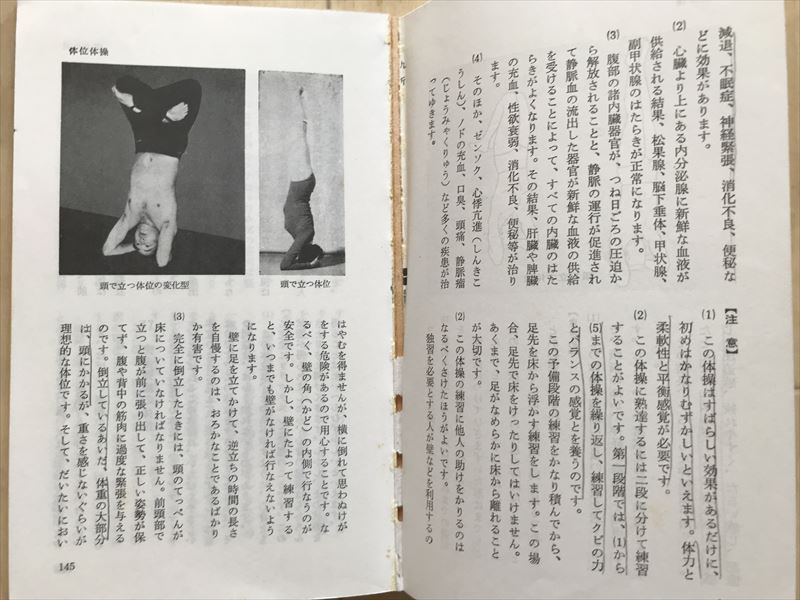 減退、不眠症、神経緊張、消化不良、便秘な
どに効果があります。
(2) 心臓より上にある内分泌腺に新鮮な血液が
供給される結果、松果腺、脳下垂体、甲状腺、
副甲状腺のはたらきが正常になります。
(3) 腹部の諸内臓器官が、つね日ごろの圧迫か
ら解放されることと、静脈の運行が促進され
て静脈血の流出した器官が新鮮な血液の供給
を受けることによって、すべての内臓のはた
らきがよくなります。その結果、肝臓や脾臓
の充血、性欲衰弱、消化不良、便秘等が治り
ます。
(4) そのほか、ゼンソク、心悸亢進(しんきこ
うしん)、ノドの充血、口臭、頭痛、静脈瘤
(じょうみゃくりゅう)など多くの疾患が治
ってゆきます。
【注 意】
(1) この体操はすばらしい効果があるだけに、
初めはかなりむずかしいといえます。体力と
柔軟性と平衡感覚が必要です。
(2) この体操に熟達するには二段に分けて練習
することがよいです。第一段階では、(1)から
(5)までの体操を繰り返し、練習してクビの力
とバランスの感覚とを養うのです。
この予備段階の練習をかなり積んでから、
足先を床から浮かす練習をします。この場
合、足先で床をけったりしてはいけません。
あくまで、足がなめらかに床から離れること
が大切です。
(2) この体操の練習に他人の助けをかりるのは
なるべくさけたほうがよいです。
独習を必要とする人が壁などを利用するの
体位体操
頭で立つ体位
頭で立つ体位の変化型
はやむを得ませんが、横に倒れて思わぬけが
をする危険があるので用心することです。な
るべく、壁の角(かど)の内側で行なうのが
安全です。しかし、壁にたよって練習する
と、いつまでも壁がなければ行なえないよう
になります。
壁に足を立てかけて、逆立ちの時間の長さ
を自慢するのは、おろかなことであるばかり
か有害です。
(3) 完全に倒立したときには、頭のてっぺんが
床についていなければなりません。前頭部で
立つと腹が前に張り出して、正しい姿勢が保
てず、腹や背中の筋肉に過度な緊張を与える
のです。倒立しているあいだ、体重の大部分
は、頭にかかるが、重さを感じないぐらいが
理想的な体位です。そして、だいたいにおい
145